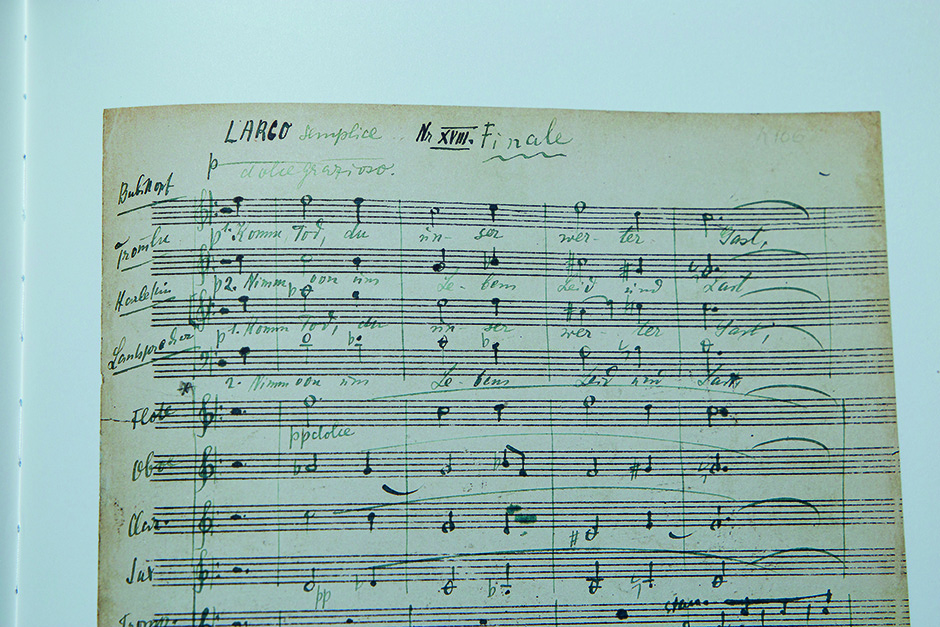 LARGO semplice .. Nr XVIII. Finale
p dolce grazioso.
Bubikopf
p 1. Komm Tod, du un- ser wer- ter Gast,
Tromm
p 2. Nimm von uns Le- bens Leid und Last
Harlekin
p 1. Komm Tod, du un- ser wer- ter Gast,
Lautsprecher
2. Nimm von uns Le- bens Leid und Last
Flöte
pp dolce
Oboe
Clar.
Sax
pp
Tromp.